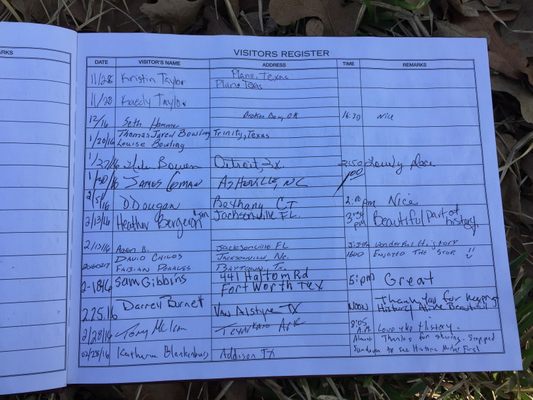 VISITORS REGISTER
MARKS
DATE VISITOR'S NAME ADDRESS TIME REMARKS
11/28 Kristin Taylor Plano, Texas
11/28 Kaedy Taylor Plano Texas
12/16 Seth Broken Bow, OK 16:30 Nice
1/20/16 Thomas Jared Bowling Trinity, Texas
Louise Bowling
Bowen TX. 2:50 Lovely place
1/30/16 James Asheville, NC 1:00
2/5/16 D Dougan Bethany CT 2: PM Nice
2/13/16 Heather Bergeron Jacksonville FL. 3: PM Beautiful part of history.
2/13/16 Adam B. Jacksonville FL Wonderful H. Story
David Childs Jacksonville 1600 Enjoyed The Stop !!
Fabian Baytown Tx.
2-18/16 Sam Gibbins 441 Haltom Rd 5:pm Great
Fort Worth Tex
2.25.16 Darrell Burnet Van Alstyne TX Noon Thank you for keeping
History Alive Beautiful
2/28/16 Tony Texarkana Ark 8:05 A.M. Love the History.
02/28/16 Katherine Blankenburg Addison TX Almost Thanks for sharing. Stopped
Sundown to see Historic Marker First